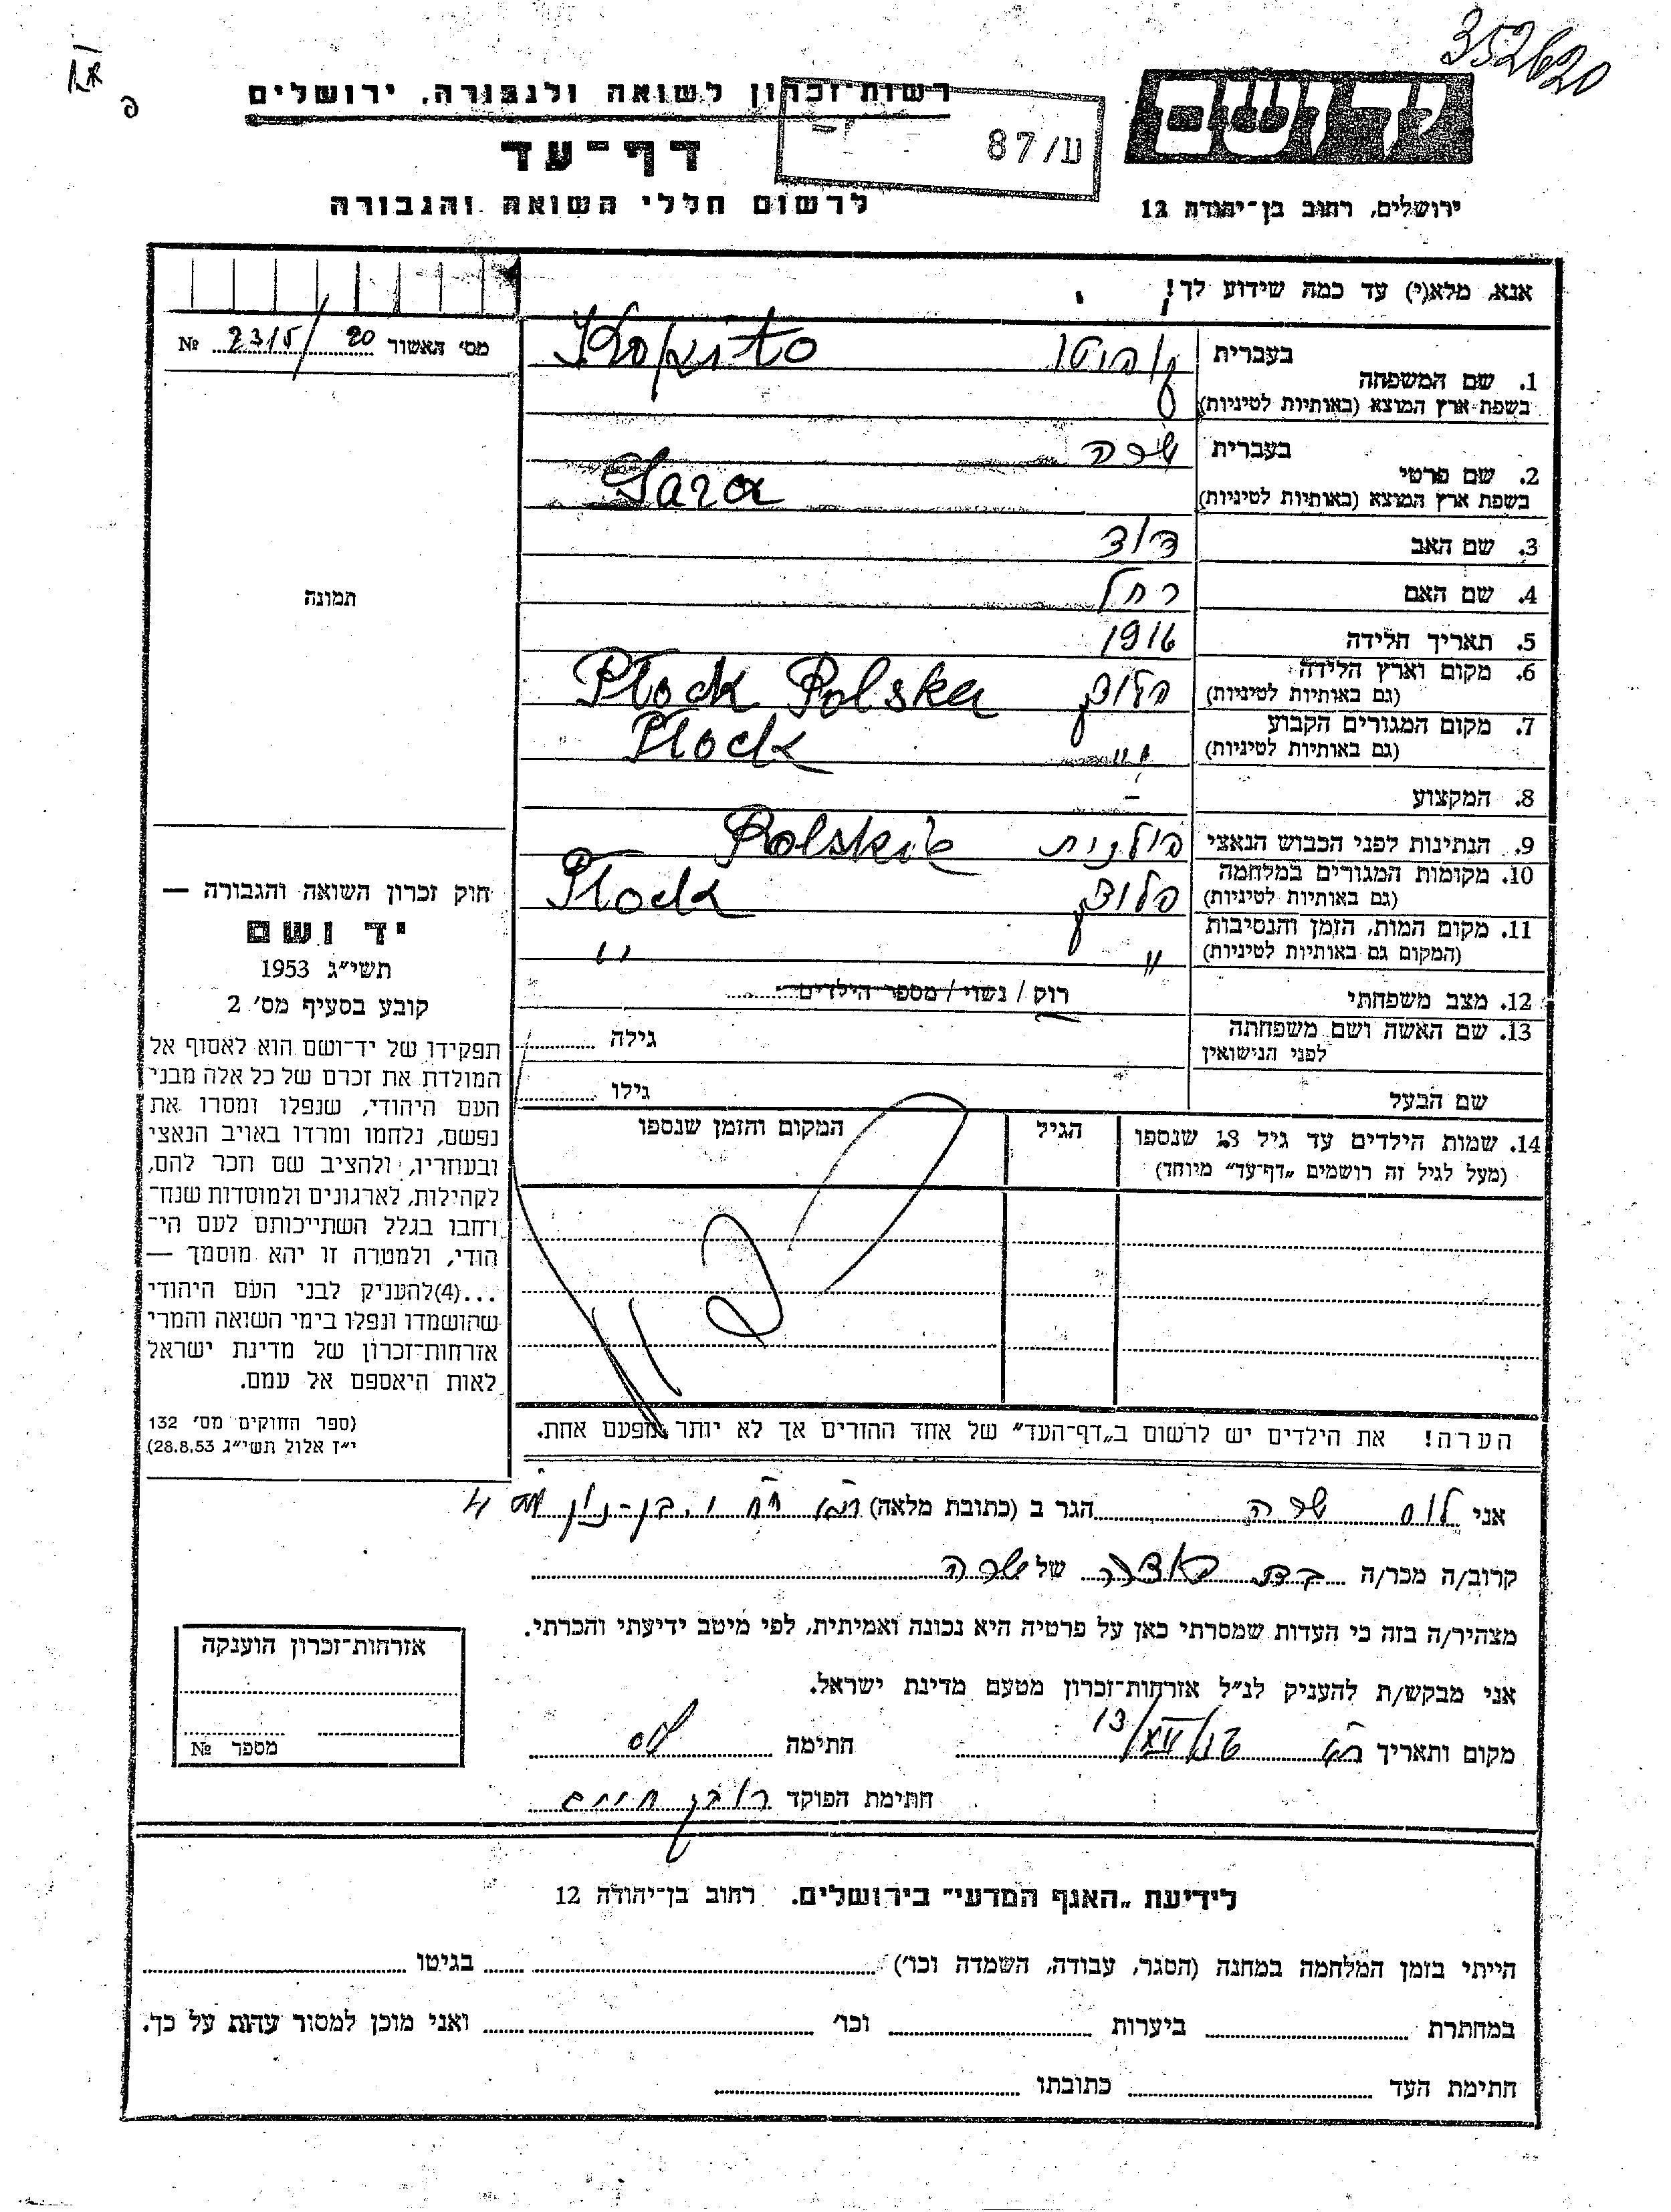 352620
רשות־זכרון לשואה ולגבורה, ירושלים
דף־עד
לרשום חללי השואה והגבורה
ע/87
יד ושם
ירושלים, רחוב בן־יהודה 12
אנא, מלא(י) עד כמה שידוע לך!
מס׳ האשור 20/2315 №
תמונה
1. שם המשפחה
בעברית
Kopito
בשפת ארץ המוצא (באותיות לטיניות)
2. שם פרטי
בעברית שרה
בשפת ארץ המוצא (באותיות לטיניות) Sara
3. שם האב דוד
4. שם האם רחל
5. תאריך הלידה 1916
6. מקום וארץ הלידה
(גם באותיות לטיניות) פלוצק Płock Polska
7. מקום המגורים הקבוע
(גם באותיות לטיניות) " Płock
8. המקצוע –
9. הנתינות לפני הכבוש הנאצי פולנית Polska
10. מקומות המגורים במלחמה
(גם באותיות לטיניות) פלוצק Płock
11. מקום המות, הזמן והנסיבות
(המקום גם באותיות לטיניות) " "
12. מצב משפחתי רוק / נשוי / מספר הילדים
13. שם האשה ושם משפחתה
לפני הנישואין גילה
שם הבעל גילו
14. שמות הילדים עד גיל 18 שנספו
(מעל לגיל זה רושמים „דף־עד״ מיוחד)
הגיל
המקום והזמן שנספו
הערה! את הילדים יש לרשום ב„דף־העד״ של אחד ההורים אך לא יותר מפעם אחת.
חוק זכרון השואה והגבורה —
יד ושם
תשי״ג 1953
קובע בסעיף מס׳ 2
תפקידו של יד־ושם הוא לאסוף אל
המולדת את זכרם של כל אלה מבני
העם היהודי, שנפלו ומסרו את
נפשם, נלחמו ומרדו באויב הנאצי
ובעוזריו, ולהציב שם וזכר להם,
לקהילות, לארגונים ולמוסדות שנח־
רבו בגלל השתייכותם לעם הי־
הודי, ולמטרה זו יהא מוסמך —
...(4)להעניק לבני העם היהודי
שהושמדו ונפלו בימי השואה והמרי
אזרחות־זכרון של מדינת ישראל
לאות היאספם אל עמם.
(ספר החוקים מס׳ 132
י״ז אלול תשי״ג 28.8.53)
אני שרה הגר ב (כתובת מלאה) בן-נון 4
קרוב/ה מכר/ה בת של שרה
מצהיר/ה בזה כי העדות שמסרתי כאן על פרטיה היא נכונה ואמיתית, לפי מיטב ידיעתי והכרתי.
אני מבקש/ת להעניק לנ״ל אזרחות־זכרון מטעם מדינת ישראל.
מקום ותאריך חתימה
חתימת הפוקד
אזרחות־זכרון הוענקה
מספר №
לידיעת „האגף המדעי״ בירושלים. רחוב בן־יהודה 12
הייתי בזמן המלחמה במחנה (הסגר, עבודה, השמדה וכו׳) בגיטו
במחתרת ביערות וכו׳ ואני מוכן למסור עדות על כך.
חתימת העד כתובתו